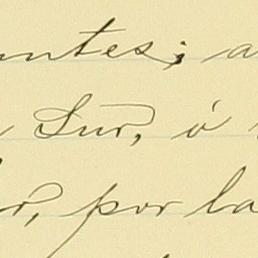 ntes; a
Sur, ó
r, por la